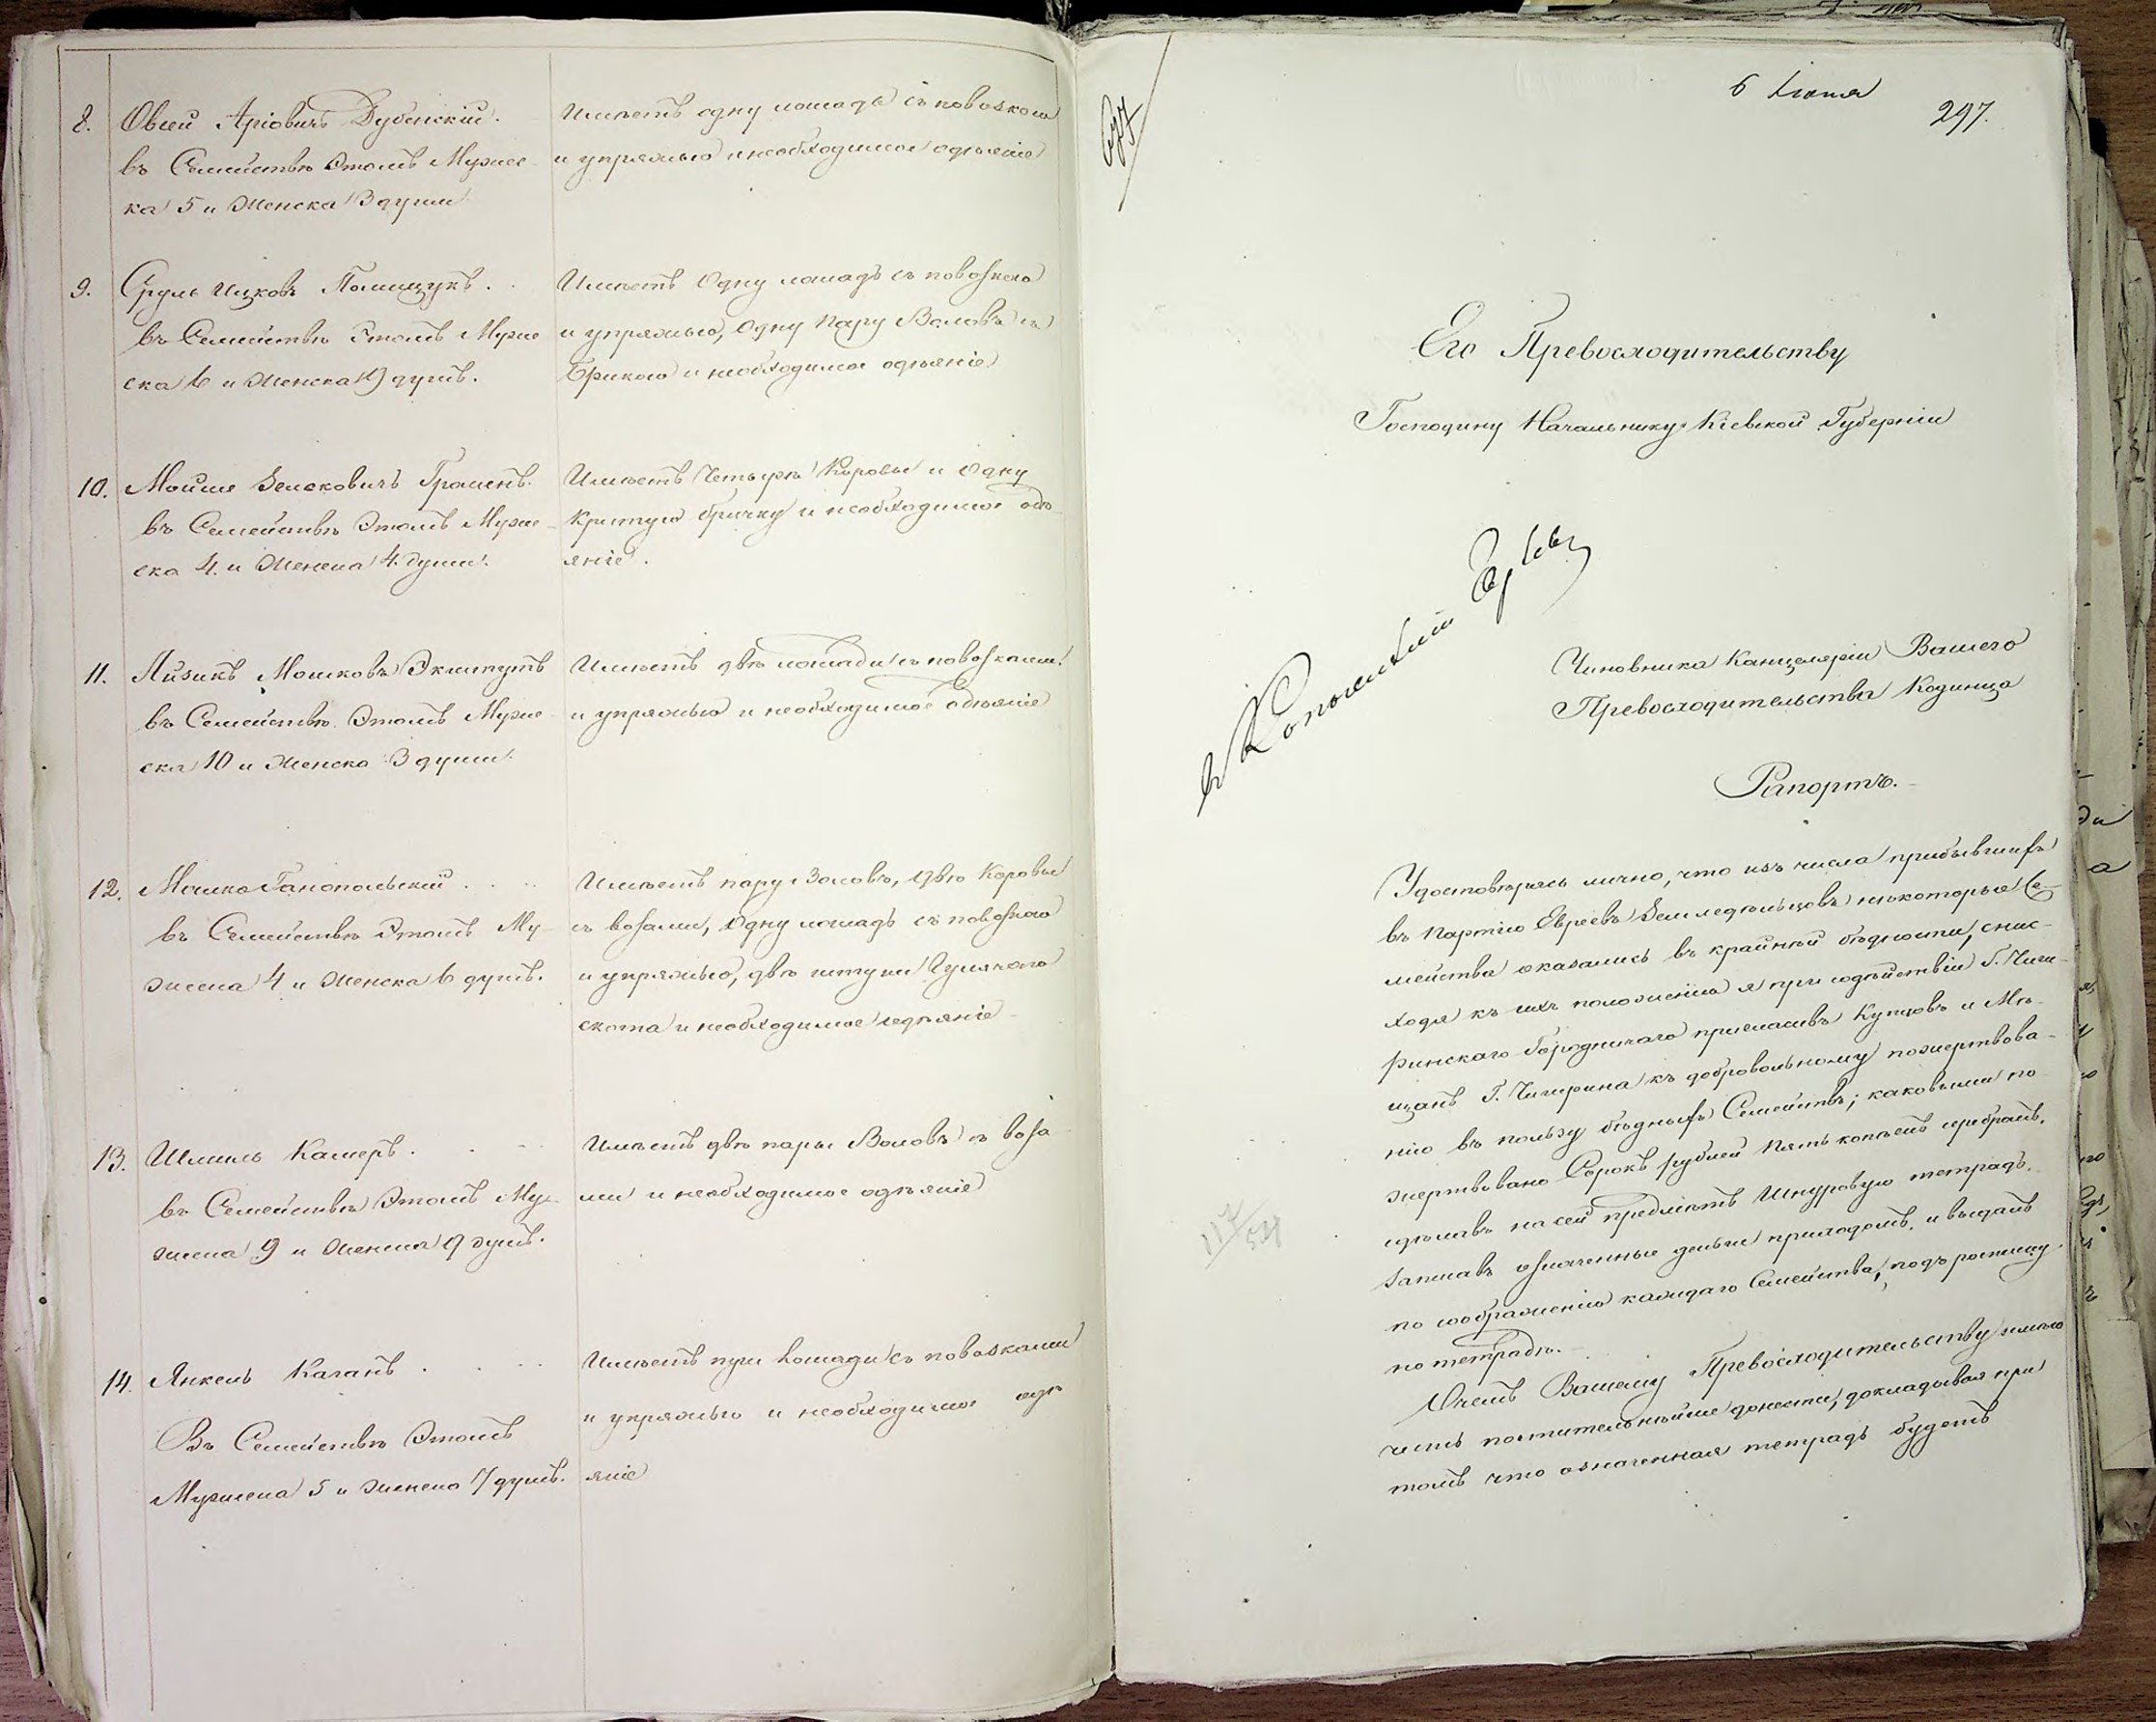 8. Овсей Аріовичъ Дубенскій.
въ Семействѣ Этомъ Мужес-
ка 5 и Женска 3 души
Имѣетъ одну лошадь съ повозкою
и упряжью и необходимое одѣяніе
9. Сруль Ицковъ Полищукъ.
въ Семействѣ Этомъ Муже
ска 6 и Женска 9 душъ.
Имѣетъ Одну лошадь съ повозкою
и упряжью, Одну Пару Воловъ съ
Брикою и необходимое одѣяніе
10. Мойше Зельковичъ
въ Семействѣ Этомъ Муже-
ска 4. и Женска 4 души.
Имѣетъ Четыре Коровы и Одну
Критую бричку и необходимое одѣ
яніе.
11. Айзикъ Мошковъ
въ Семействѣ Этомъ Муже-
ска 10 и Женска 3 души.
Имѣетъ двѣ лошади съ повозками
и упряжью и необходимое Одѣяніе
12. Мошко Ганопольскій
въ Семействѣ Этомъ Му-
жеска 4 и Женска 6 душъ.
Имѣетъ пару Воловъ, двѣ Коровы
съ возами, Одну лошадь съ повозкою
и упряжью, двѣ штуки Гулячого
скота и необходимое одѣяніе
13. Шмиль Камеръ.
въ Семействѣ Этомъ Му-
жеска 9 и Женска 9 душъ.
Имѣетъ двѣ пары Воловъ съ воза
ми и необходимое одѣяніе
14. Янкель Каганъ
Въ Семействѣ Этомъ
Мужеска 5 и Женско 7 душъ.
Имѣетъ три Лошади съ повозками
и упряжью и необходимое одѣ
яніе
6 Іюня
297.
Его Превосходительству
Господину Начальнику Кіевской Губерніи
Чиновника Канцеляріи Вашего
Превосходительства Кодинца
Рапортъ.
Удостовѣрясь лично, что изъ числа прибывшихъ
въ Партію Евреевъ Земледѣльцовъ нѣкоторыя Се-
мейства оказались въ крайней бѣдности, снис-
ходя къ ихъ положенію я при содѣйствіи Г. Чиги-
ринскаго Городничаго пригласивъ Купцовъ и Мѣ-
щанъ Г. Чигирина къ добровольному пожертвова-
нію въ пользу бѣдныхъ Семействъ; каковыми по
жертвовано Сорокъ рублей пять копѣекъ серебромъ,
сдѣлавъ на сей предмѣтъ Шнуровую тетрадь,
записавъ означенные деньги приходомъ, и выдавъ
по соображенію каждаго Семейства, подъ росписку
по тетради.
О чемъ Вашему Превосходительству имѣю
честь почтительнѣйше донести, докладывая при
томъ что означенная тетрадь будетъ